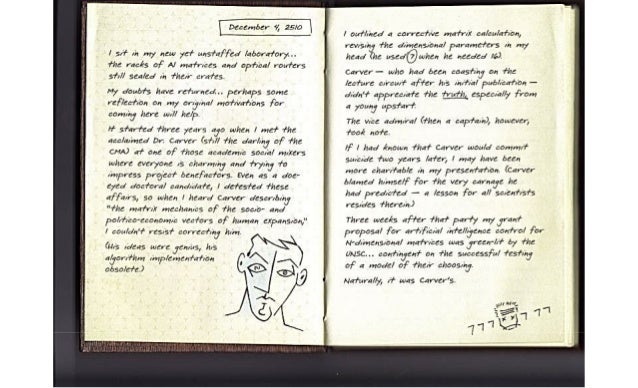 December 4, 2510
I sit in my new yet unstaffed laboratory...
the racks of AI matrices and optical routers
still sealed in their crates.
My doubts have returned... perhaps some
reflection on my original motivations for
coming here will help.
It started three years ago when I met the
acclaimed Dr. Carver (still the darling of the
CMA) at one of those academic social mixers
where everyone is charming and trying to
impress project benefactors. Even as a doe-
eyed doctoral candidate, I detested these
affairs, so when I heard Carver describing
"the matrix mechanics of the socio- and
politico-economic vectors of human expansion,"
I couldn't resist correcting him.
(His ideas were genius, his
algorithm implementation
obsolete.)
I outlined a corrective matrix calculation,
revising the dimensional parameters in my
head (he used 7 when he needed 16).
Carver — who had been coasting on the
lecture circuit after his initial publication —
didn't appreciate the truth, especially from
a young upstart.
The vice admiral (then a captain), however,
took note.
If I had known that Carver would commit
suicide two years later, I may have been
more charitable in my presentation. (Carver
blamed himself for the very carnage he
had predicted — a lesson for all scientists
resides therein.)
Three weeks after that party my grant
proposal for artificial intelligence control for
N-dimensional matrices was green-lit by the
UNSC... contingent on the successful testing
of a model of their choosing.
Naturally, it was Carver's.
777 7 77